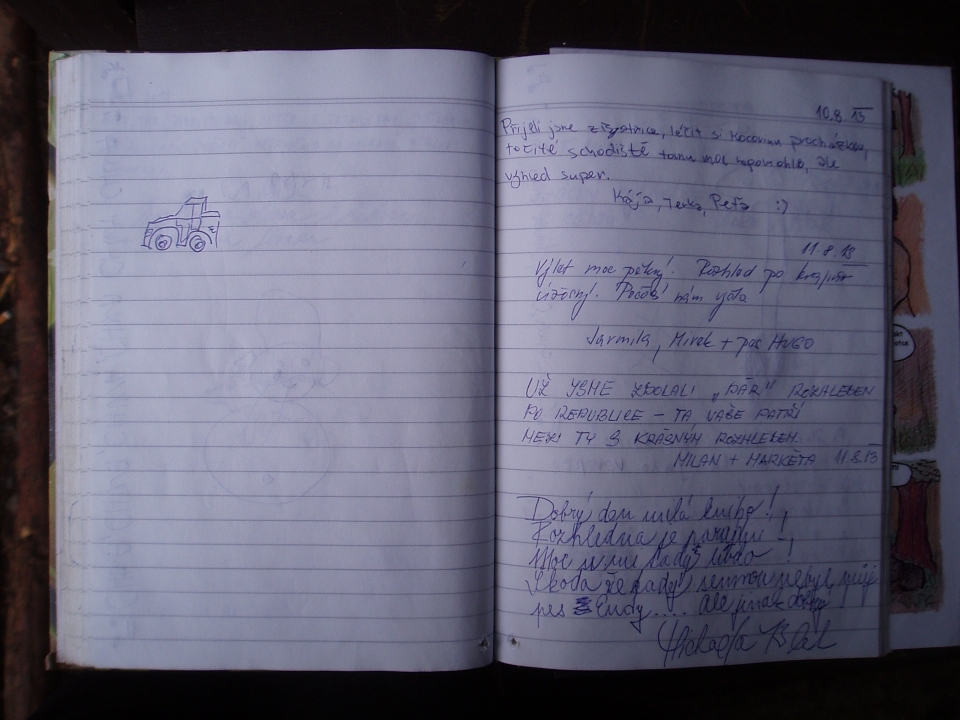 10.8.13
Přijeli jsme z Bystřice, léčit si kocovinu procházkou,
točité schodiště tomu moc nepomohlo, ale
výhled super.
Kája, Jenka, Peťa :)
11.8.13
Výlet moc pěkný. Rozhled po krajině
úžasný. Počasí nám vyšlo
Jarmila, Mirek + pes HUGO
UŽ JSME ZDOLALI „PÁR" ROZHLEDEN
PO REPUBLICE – TA VAŠE PATŘÍ
MEZI TY S KRÁSNÝM ROZHLEDEM.
MILAN + MARKÉTA 11.8.13
Dobrý den milá kniho!
Rozhledna je
Moc se mi tady líbilo!
Škoda že tady semnou nebyl můj
pes Endy.... Ale jinak dobrý